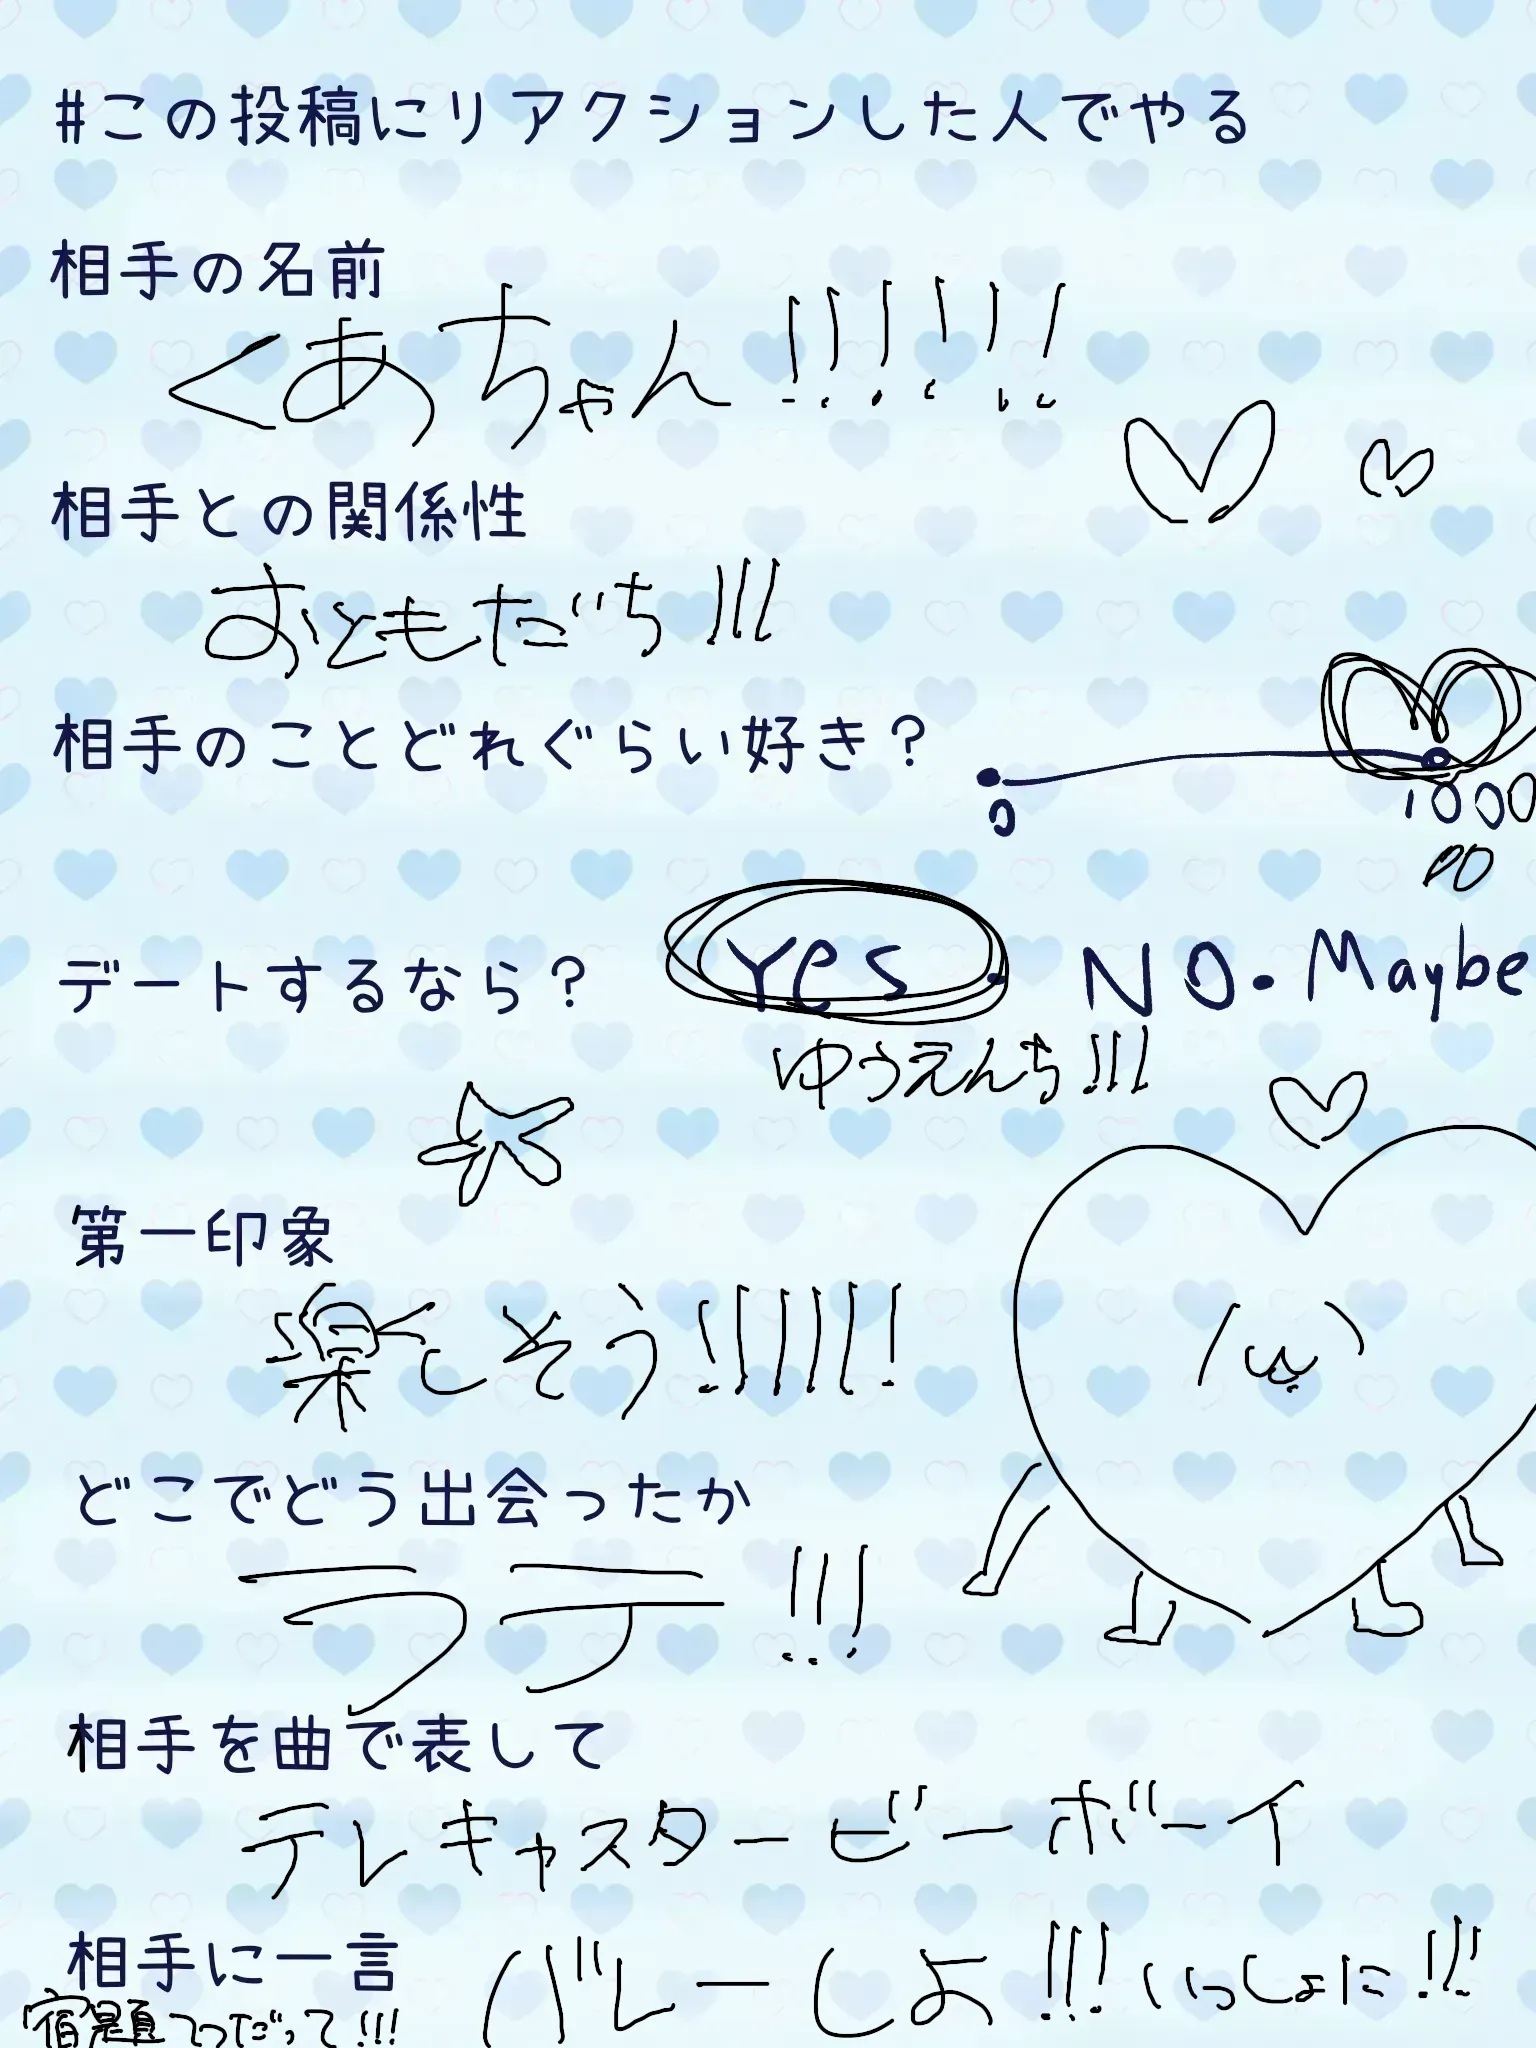 #この投稿にリアクションした人でやる
相手の名前
くあちゃん!!!!!!
相手との関係性
おともだち!!!
相手のことどれぐらい好き?
0 1000
デートするなら? Yes. NO. Maybe
ゆうえんち!!!
第一印象
楽しそう!!!!!!
どこでどう出会ったか
ラテ!!!
相手を曲で表して
テレキャスタービーボーイ
相手に一言
バレーしよ!!! いっしょに!!!
宿題てつだって!!!